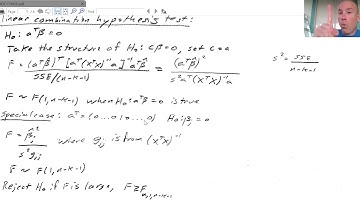 linear combination hypothesis test:
H₀: aᵀβ = 0
Take the structure of H₀: Cβ = 0, set C = a
F = (aᵀβ̂)ᵀ [aᵀ(XᵀX)⁻¹a]⁻¹ aᵀβ̂ / SSE/(n-k-1) = (aᵀβ̂)² / s² aᵀ(XᵀX)⁻¹a
s² = SSE / n-k-1
F ~ F(1, n-k-1) when H₀: aᵀβ = 0 is true
special case: aᵀ = (0 … 0 1 0 … 0) H₀: βⱼ = 0
F = β̂ⱼ² / s² gⱼⱼ where gⱼⱼ is from (XᵀX)⁻¹
F ~ F(1, n-k-1)
Reject H₀ if F is large, F ≥ F α,1,n-k-1